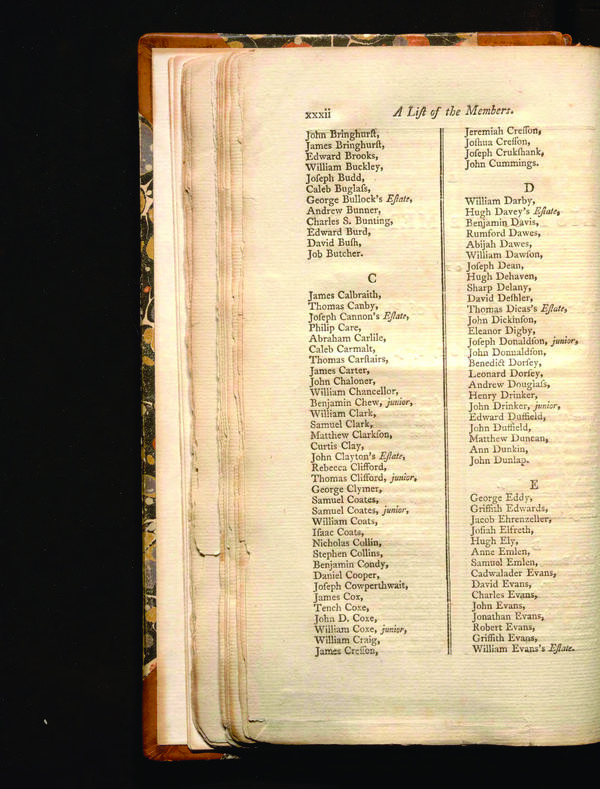 xxxii
A Liſt of the Members.
John Bringhurſt,
James Bringhurſt,
Edward Brooks,
William Buckley,
Joſeph Budd,
Caleb Buglaſs,
George Bullock's Eſtate,
Andrew Bunner,
Charles S. Bunting,
Edward Burd,
David Buſh,
Job Butcher.
C
James Calbraith,
Thomas Canby,
Joſeph Cannon's Eſtate,
Philip Care,
Abraham Carlile,
Caleb Carmalt,
Thomas Carſtairs,
James Carter,
John Chaloner,
William Chancellor,
Benjamin Chew, junior,
William Clark,
Samuel Clark,
Matthew Clarkſon,
Curtis Clay,
John Clayton's Eſtate,
Rebecca Clifford,
Thomas Clifford, junior,
George Clymer,
Samuel Coates,
Samuel Coates, junior,
William Coats,
Iſaac Coats,
Nicholas Collin,
Stephen Collins,
Benjamin Condy,
Daniel Cooper,
Joſeph Cowperthwait,
James Cox,
Tench Coxe,
John D. Coxe,
William Coxe, junior,
William Craig,
James Creſſon,
Jeremiah Creſſon,
Joſhua Creſſon,
Joſeph Crukſhank,
John Cummings.
D
William Darby,
Hugh Davey's Eſtate,
Benjamin Davis,
Rumford Dawes,
Abijah Dawes,
William Dawſon,
Joſeph Dean,
Hugh Dehaven,
Sharp Delany,
David Deſhler,
Thomas Dicas's Eſtate,
John Dickinſon,
Eleanor Digby,
Joſeph Donaldſon, junior,
John Donnaldſon,
Benedict Dorſey,
Leonard Dorſey,
Andrew Douglaſs,
Henry Drinker,
John Drinker, junior,
Edward Duffield,
John Duffield,
Matthew Duncan,
Ann Dunkin,
John Dunlap.
E
George Eddy,
Griffith Edwards,
Jacob Ehrenzeller,
Joſiah Elfreth,
Hugh Ely,
Anne Emlen,
Samuel Emlen,
Cadwalader Evans,
David Evans,
Charles Evans,
John Evans,
Jonathan Evans,
Robert Evans,
Griffith Evans,
William Evans's Eſtate.